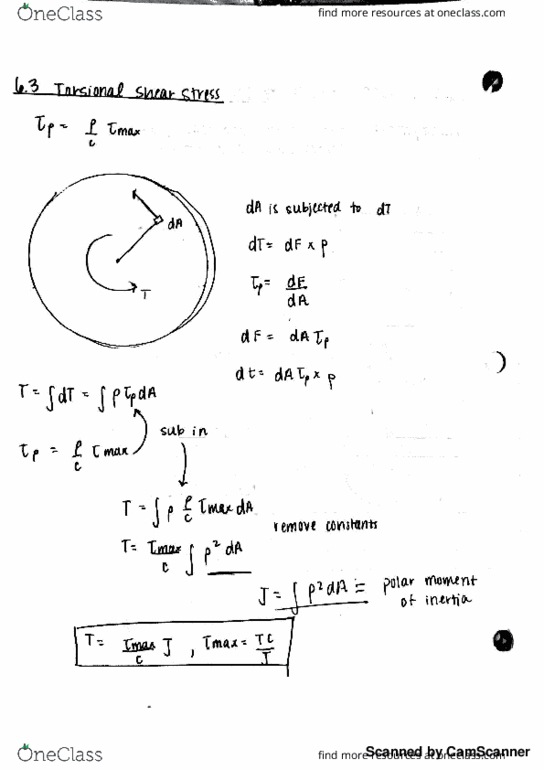 OneClass
find more resources at oneclass.com
6.3 Torsional shear stress
τρ = ρ/c τmax
dA
T
dA is subjected to dT
dT = dF × ρ
τρ = dF/dA
dF = dA τρ
dt = dA τρ × ρ
T = ∫dT = ∫ρ τρ dA
sub in
τρ = ρ/c τmax
T = ∫ρ ρ/c τmax dA
remove constants
T = τmax/c ∫ρ² dA
J = ∫ρ² dA = polar moment
of inertia
T = τmax/c J , τmax = TC/J
OneClass
find more resources at oneclass.com
Scanned by CamScanner